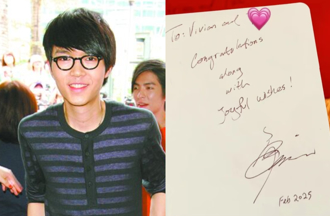 To: Vivian and
Congratulations
along
with
Joyful wishes!
Feb 2025